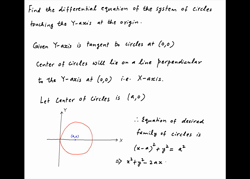 Find the differential equation of the system of circles
touching the Y-axis at the origin.
Given Y-axis is tangent to circles at (0,0)
Center of circles will lie on a line perpendicular
to the Y-axis at (0,0) i.e X-axis.
Let Center of Circles is (a,0)
Y
∴ Equation of desired
family of circles is
(a,0)
(x-a)²+y² = a²
X
⇒ x²+y²- 2ax